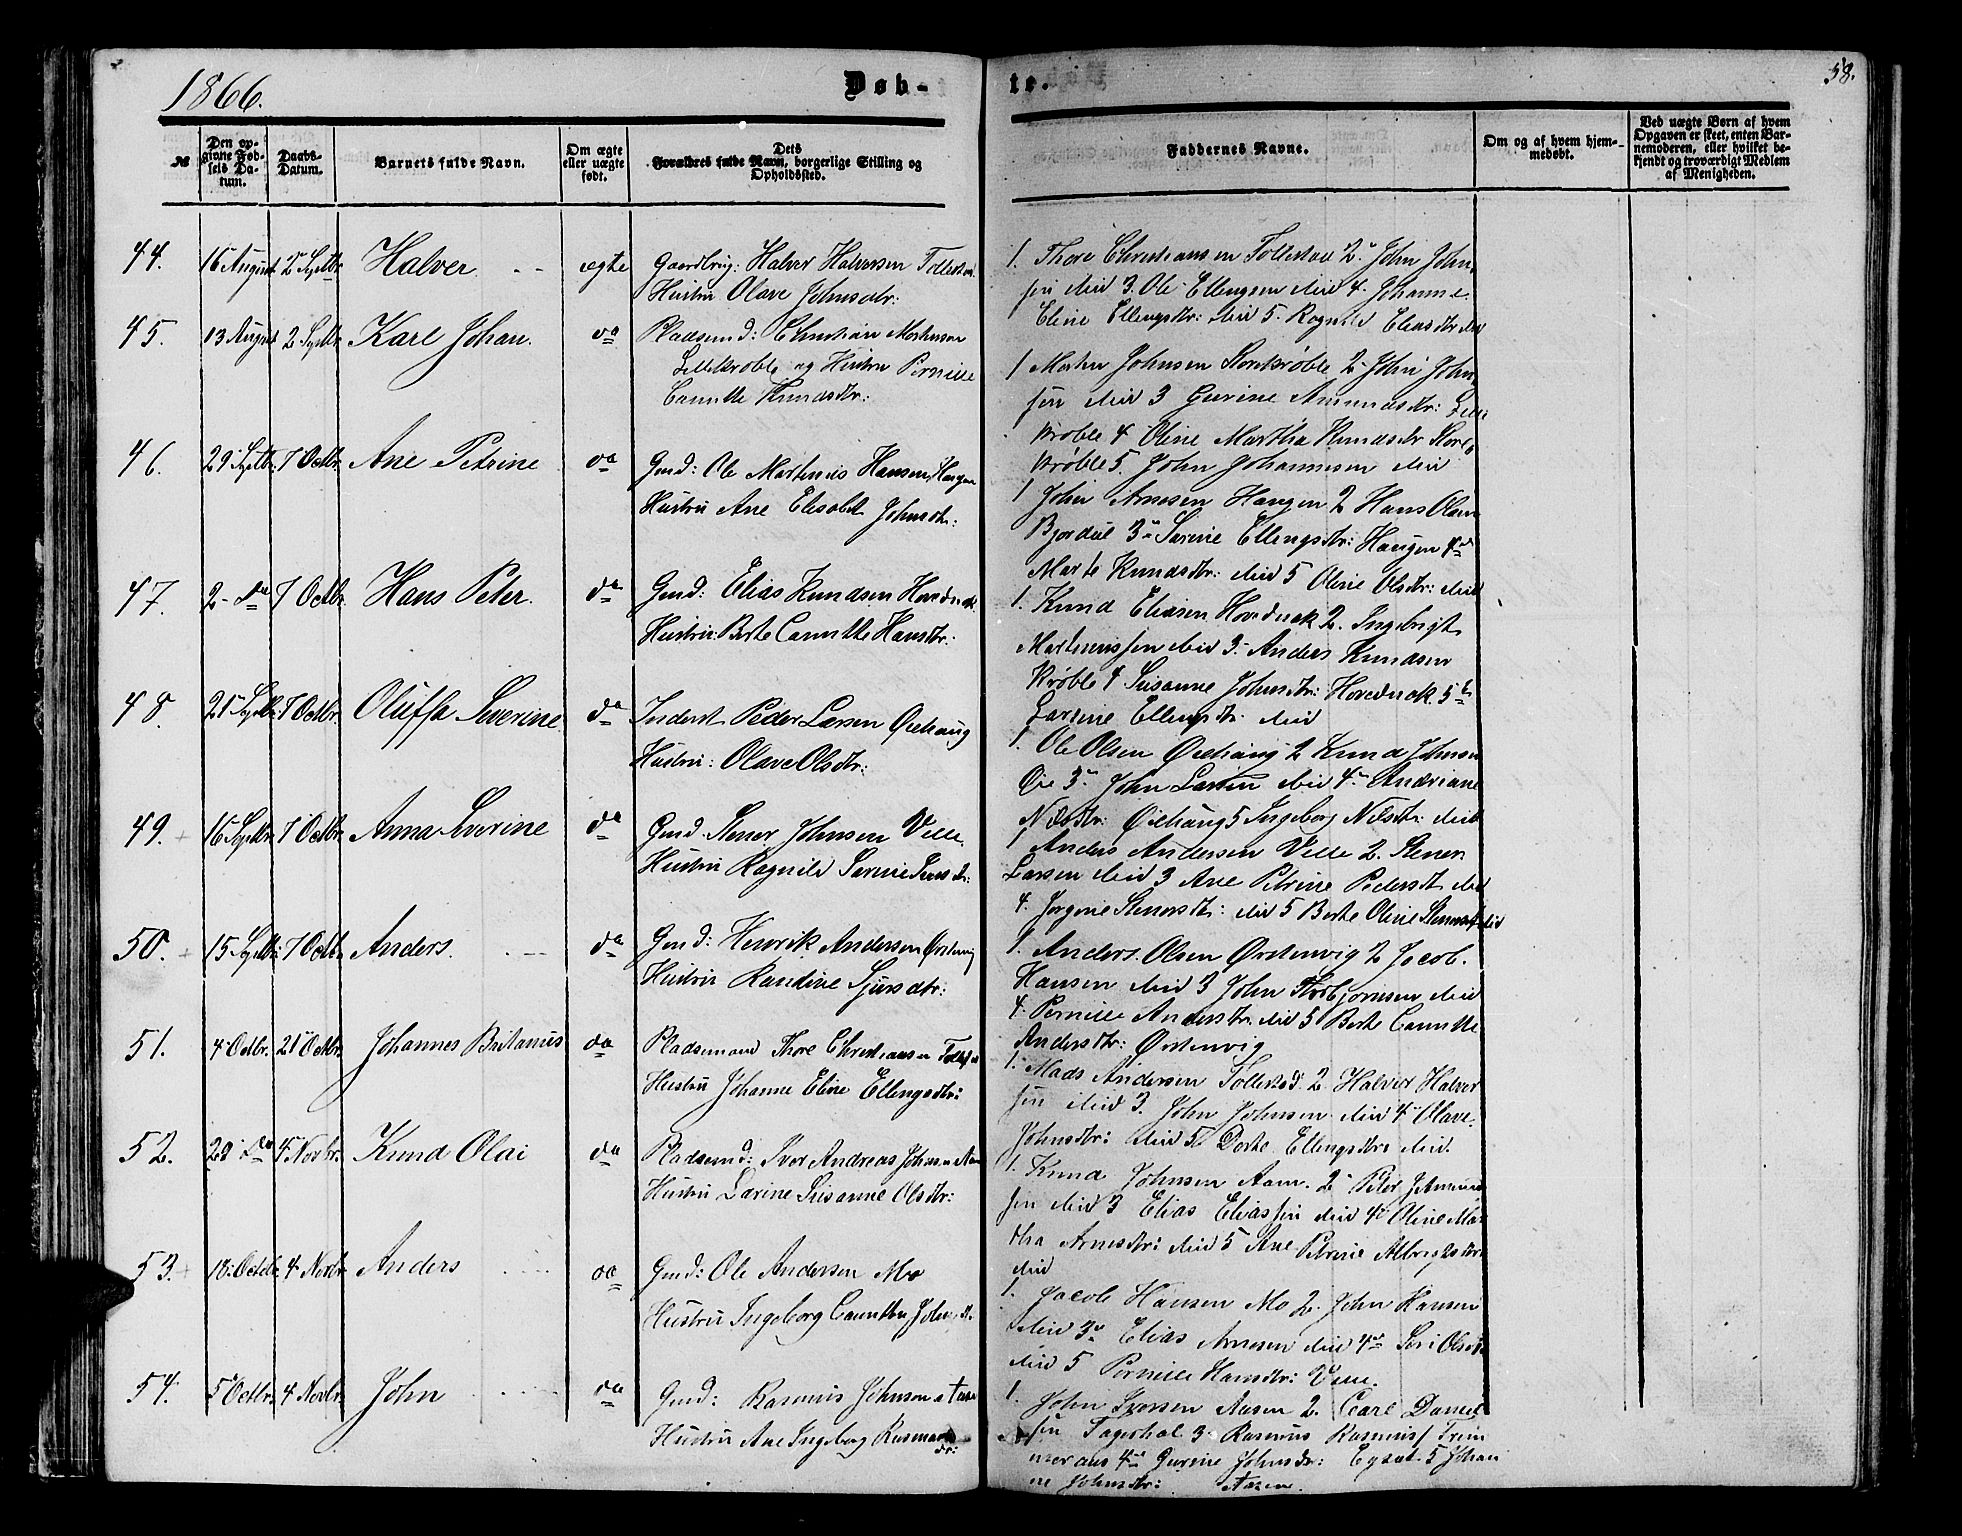 1866.
Døb-
te.
58.
№
Den op-
givne Fød-
sels Da-
tum.
Daabs-
Datum.
Barnets fulde Navn.
Om ægte
eller uægte
født.
Dets
Forældres fulde Navn, borgerlige Stilling og
Opholdssted.
Faddernes Navne.
Om og af hvem hjem-
medøbt.
Ved uægte Børn af hvem
Opgaven er skeet, enten Bar-
nemoderen, eller hvilket be-
kjendt og troværdigt Medlem
af Menigheden.
44. 16 August 2 Septbr Halver ægte Gaardbrug: Halver Halversen Tollestad
Hustru Olave Johnsdtr:
1. Thore Christiansen Tollestad 2. John John-
sen ibid 3. Ole Ellengsen ibid 4. Johanne
Eline Ellengsdtr: ibid 5. Rognild Eliasdtr ibid
45. 13 August 2 Septbr Karl Johan. do Pladsemd: Christian Mortensen
Lillekrøble og Hustru Pernille
Camilla Knudsdtr:
1 Morten Johnsen Storekrøble 2 John John-
sen ibid 3 Gurine Amundsdtr: Lille
krøble 4 Oline Martha Knudsdtr Store
krøble 5. John Johannesen ibid
46. 29 Septbr 7 Octbr. Ane Petrine do Gmd: Ole Martinus Hansen Haugen
Hustru Ane Elisabet Johnsdtr:
1 John Arnesen Haugen 2 Hans Olsen
Bjordal 3 Sarine Ellengsdtr: Haugen 4
Marte Knudsdtr: ibid 5 Oline Olsdtr: ibid
47. 2 do 7 Octbr. Hans Peter. do Gmd: Elias Knudsen Hovednak
Hustru: Berte Camilla Hansdtr:
1. Knud Eliasen Hovednak 2. Ingebrigt
Martinussen ibid 3. Anders Knudsen
Krøble 4 Susanne Johnsdtr: Hovednak. 5
Larsine Ellengsdtr. ibid
48. 21 Septbr 7 Octbr. Oluffa Severine do Inderst Peder Larsen Øiehaug
Hustru: Olave Olsdtr:
1. Ole Olsen Øiehaug 2 Knud Johnsen
Øie 3. John Larsen ibid 4. Andriane
Nilsdtr: Øiehaug 5 Ingeborg Nilsdtr: ibid
49. 16 Septbr 7 Octbr. Anna Severine do Gmd. Stener Johnsen Velle
Hustru Ragnild Sarine
1 Anders Andersen Velle 2. Stener
Larsen ibid 3 Ane Petrine Pedersdt ibid
4. Jørgine Stenersdtr: ibid 5 Berte Oline Stenersdt ibid
50. 15 Septbr 7 Octbr Anders. do Gmd: Henrik Andersen Ørstenvig
Hustru Randine Sjursdtr:
1. Anders Olsen Ørstenvig 2 Jacob
Hansen ibid 3 John Thorbjørnsen ibid
4. Pernille Andersdtr. ibid 5 Berte Camilla
Andersdtr: Ørstenvig
51. 4 Octbr. 21 Octbr. Johannes Britanus do Pladsemand Thore Christiansen
Hustru Johanne Eline Ellengsdtr:
1. Mads Andersen Tollestad: 2 Halver Halver
sen ibid 3. John Johnsen ibid 4 Olave
Johnsdtr: ibid 5. Dorte Ellengsdtr: ibid.
52. 28 do 4 Novbr. Knud Olai do Pladsemd: Ivor Andreas Johnsen Aam
Hustru Larine Susanne Olsdtr:
1. Knud Johnsen Aam. 2
sen ibid 3 Elias Eliassen ibid 4 Oline Mar-
tha Arnesdtr: ibid 5 Ane Petrine
ibid
53. 18. Octbr. 4 Novbr. Anders do Gmd: Ole Andersen Mo
Hustru Ingeborg
1. Jacob Hansen Mo 2. John Hansen
ibid 3. Elias Arnesen ibid 4 Siri Olsdt
ibid 5 Pernille Hansdtr: Velle.
54. 5 Octbr. 4 Novbr. John do Gmd: Rasmus Johnsen
Hustru Ane Ingeborg Rasmus
dtr:
1. John Iversen Aasen 2. Carl Daniel
sen 3. Rasmus Rasmus
4 Gurine Johnsdtr: 5 Johan
ne Johnsdtr: Aasen.